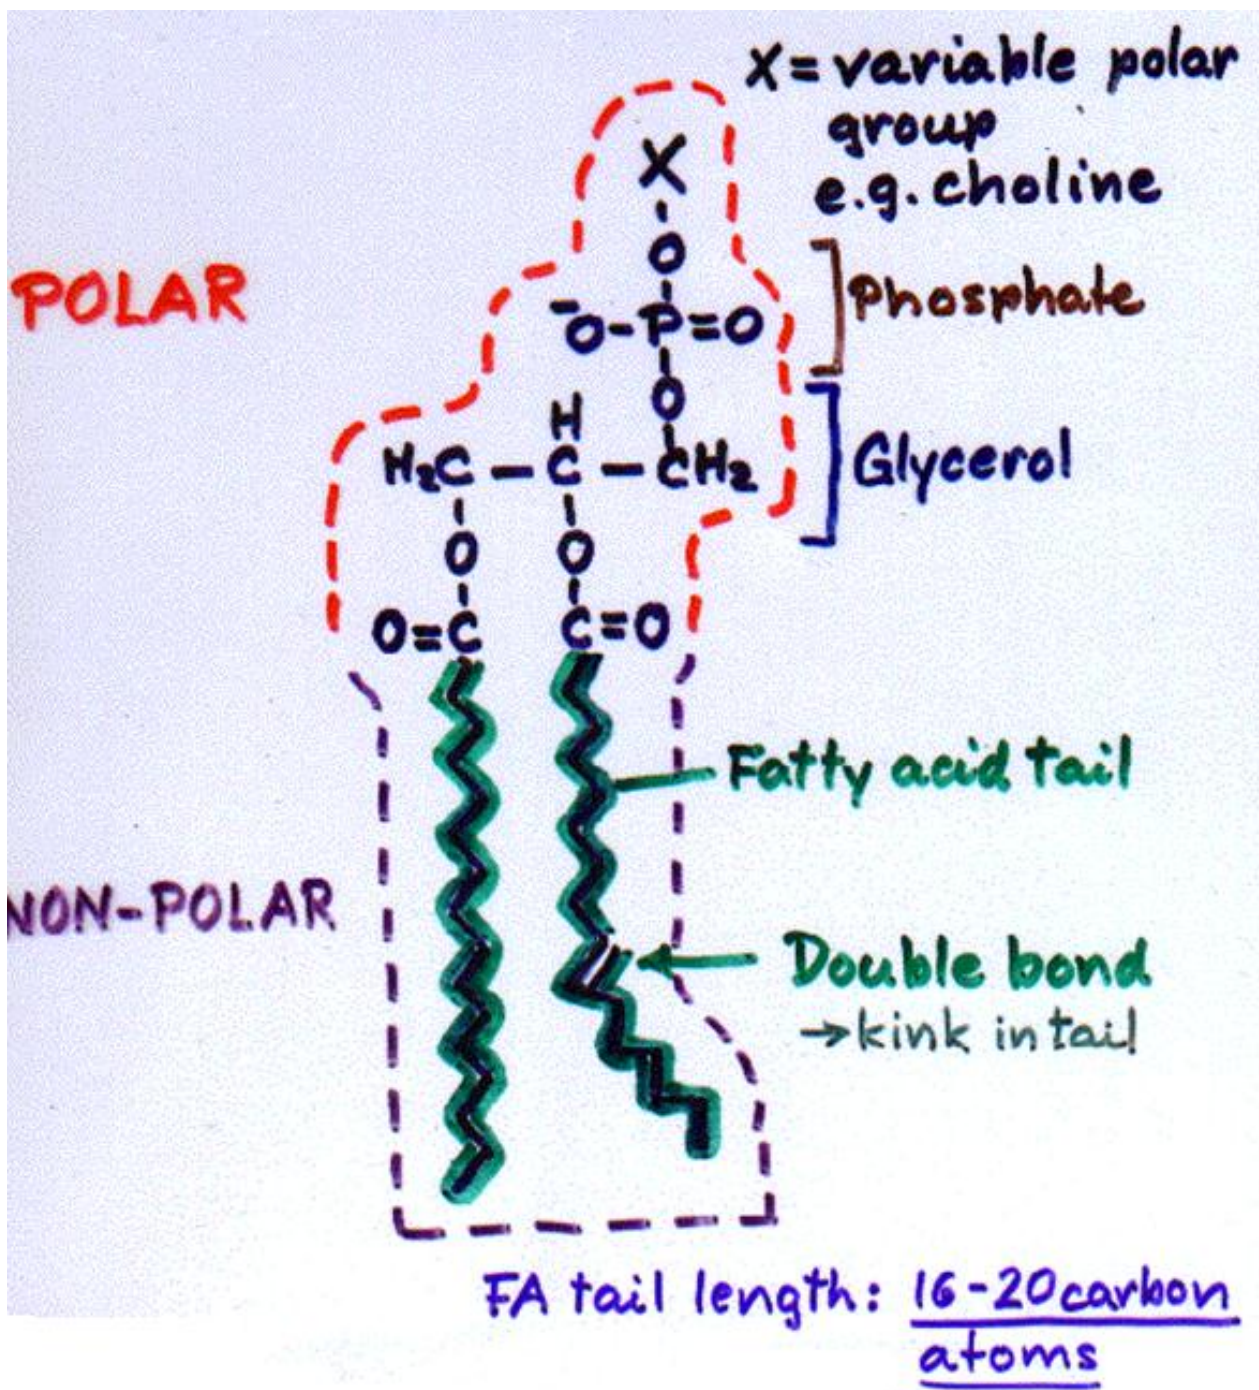 X = variable polar
group
e.g. choline
X
O
POLAR
Phosphate
⁻O-P=O
O
H
H₂C - C - CH₂
Glycerol
O O
O=C C=O
Fatty acid tail
NON-POLAR
Double bond
→ kink in tail
FA tail length: 16-20 carbon
atoms